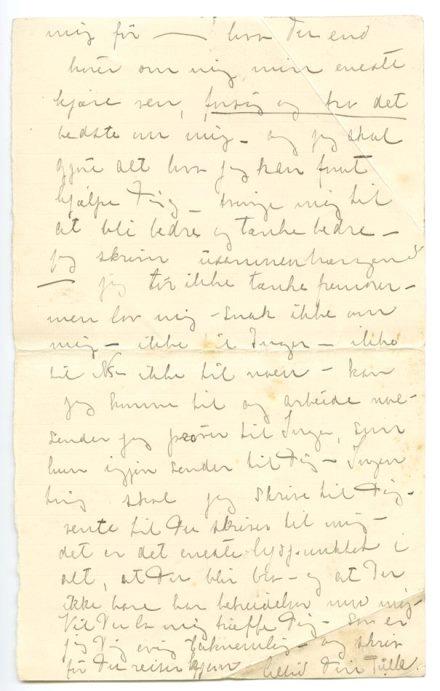 mig för — hva Du end
hører om mig, min eneste
kjære ven, forsøg og tro det
bedste om mig – og jeg skal
gjøre alt hva jeg kan for at
hjælpe Dig – tvinge mig til
at bli bedre og tænke bedre –
jeg skriver usammenhængende
— jeg tör ikke tænke fremover –
men lov mig – snak ikke om
mig – ikke til Inger – ikke
til N– ikke til noen – kan
jeg komme til og arbeide noe –
sender jeg prøver til Inger, som
hun igjen sender til Dig – Ingen
ting skal jeg skrive til Dig –
vente til Du skriver til mig –
det er det eneste lyspunktet i
alt, at Du blir bra – og at Du
ikke bare har bebreidelser mod mig –
Vil Du la mig træffe Dig – Som er
jeg Dig evig taknemlig – og skriv
før Du reiser hjem – Altid Din Tulla